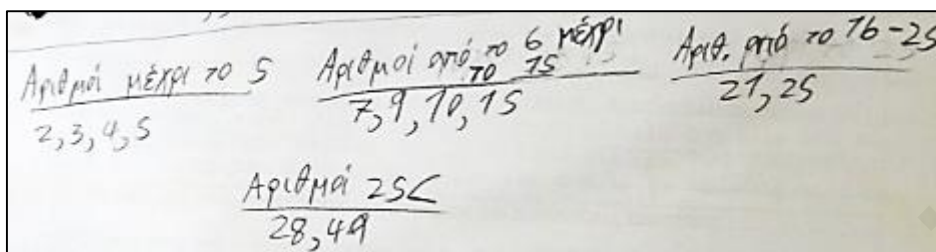 Αριθμοί μέχρι το 5
2, 3, 4, 5
Αριθμοί από το 6 μέχρι
το 15
7, 9, 10, 15
Αριθ. από το 16-25
21, 25
Αριθμοί 25<
28, 49